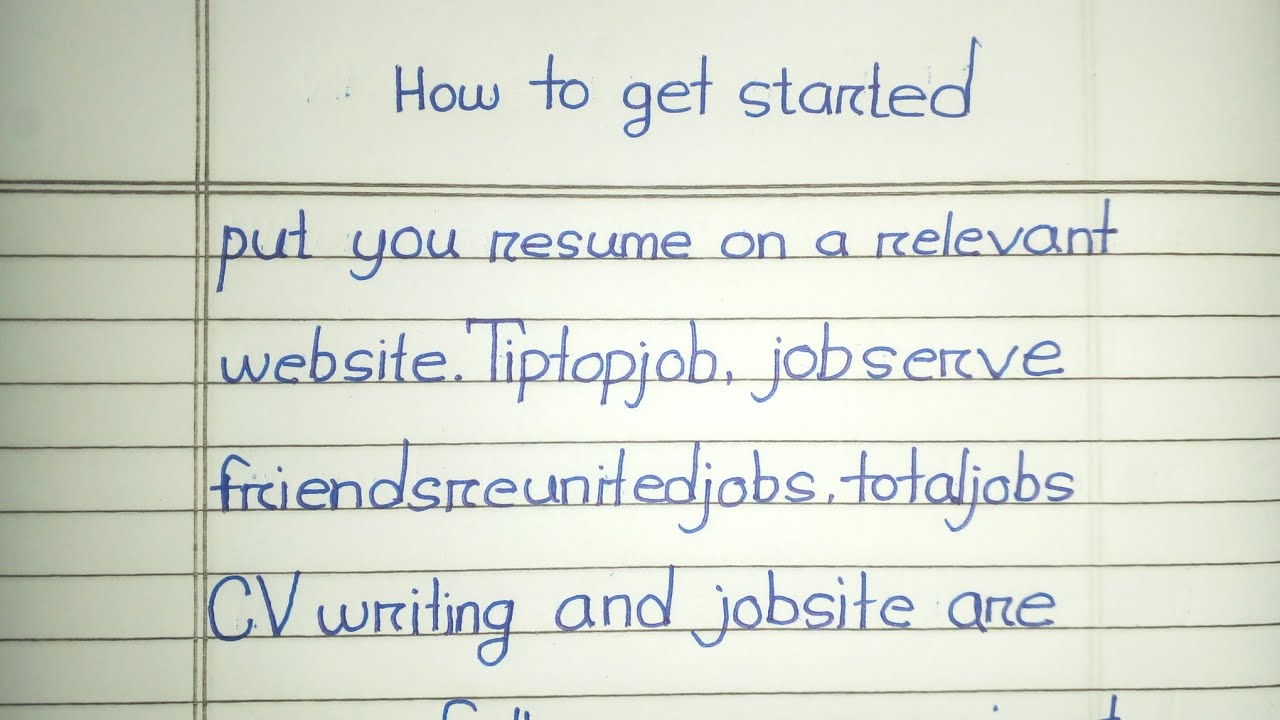 How to get started
put you resume on a relevant
website. Tiptopjob, jobserve
friendsreunitedjobs, totaljobs
CV writing and jobsite are